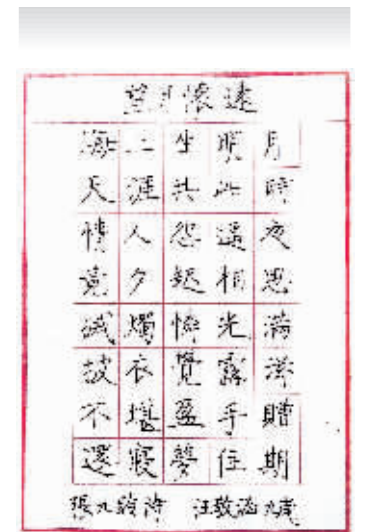 望月懷遠
海上生明月
天涯共此時
情人怨遙夜
竟夕起相思
滅燭憐光滿
披衣覺露滋
不堪盈手贈
還寢夢佳期
張九齡詩